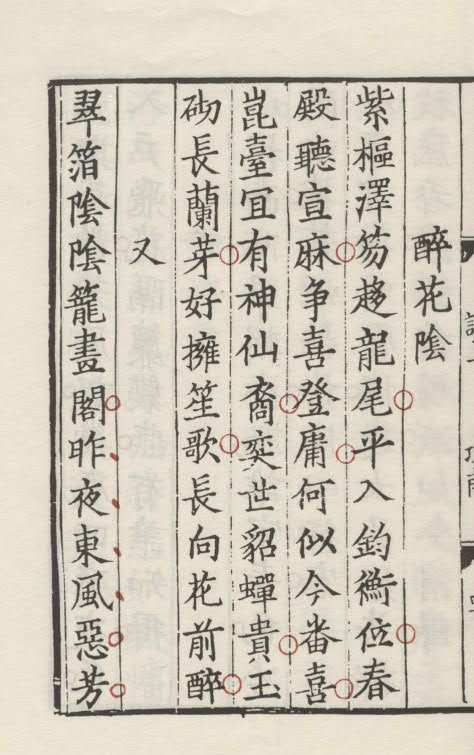 醉花陰
紫樞澤笏趍龍尾平入鈞衡位春
殿聽宣麻争喜登庸何似今番喜
崑臺冝有神仙裔奕世貂蟬貴玉
砌長蘭芽好擁笙歌長向花前醉
又
翠箔陰陰籠畫閣昨夜東風惡芳